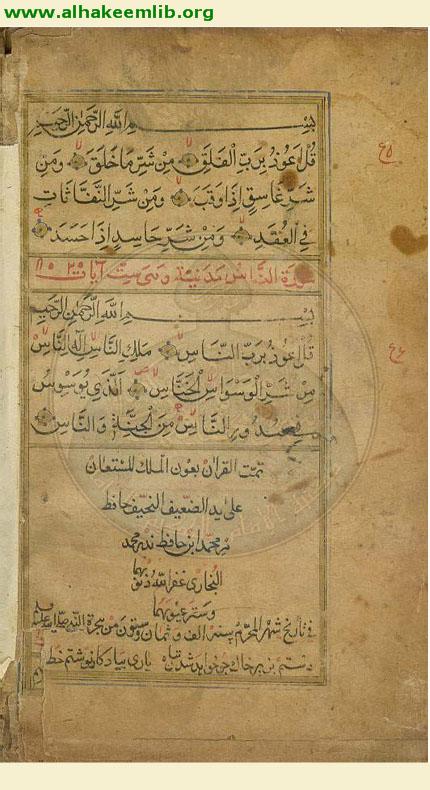 www.alhakeemlib.org
بسم الله الرحمن الرحيم
قل اعوذ برب الفلق من شر ما خلق ومن
شر غاسق اذا وقب ومن شر النفاثات
في العقد ومن شر حاسد اذا حسد
سورة الناس مدنية وهي ست آيات
بسم الله الرحمن الرحيم
قل اعوذ برب الناس ملك الناس اله الناس
من شر الوسواس الخناس الذي يوسوس
في صدور الناس من الجنة والناس
تمت القران بعون الملك المستعان
على يد الضعيف النحيف حافظ
محمد ابن حافظ محمد
البخاري غفر الله ذنوبهما
وستر عيوبهما
في تاريخ شهر المحرم سنة الف وثمان وستون من هجرة صلى الله عليه